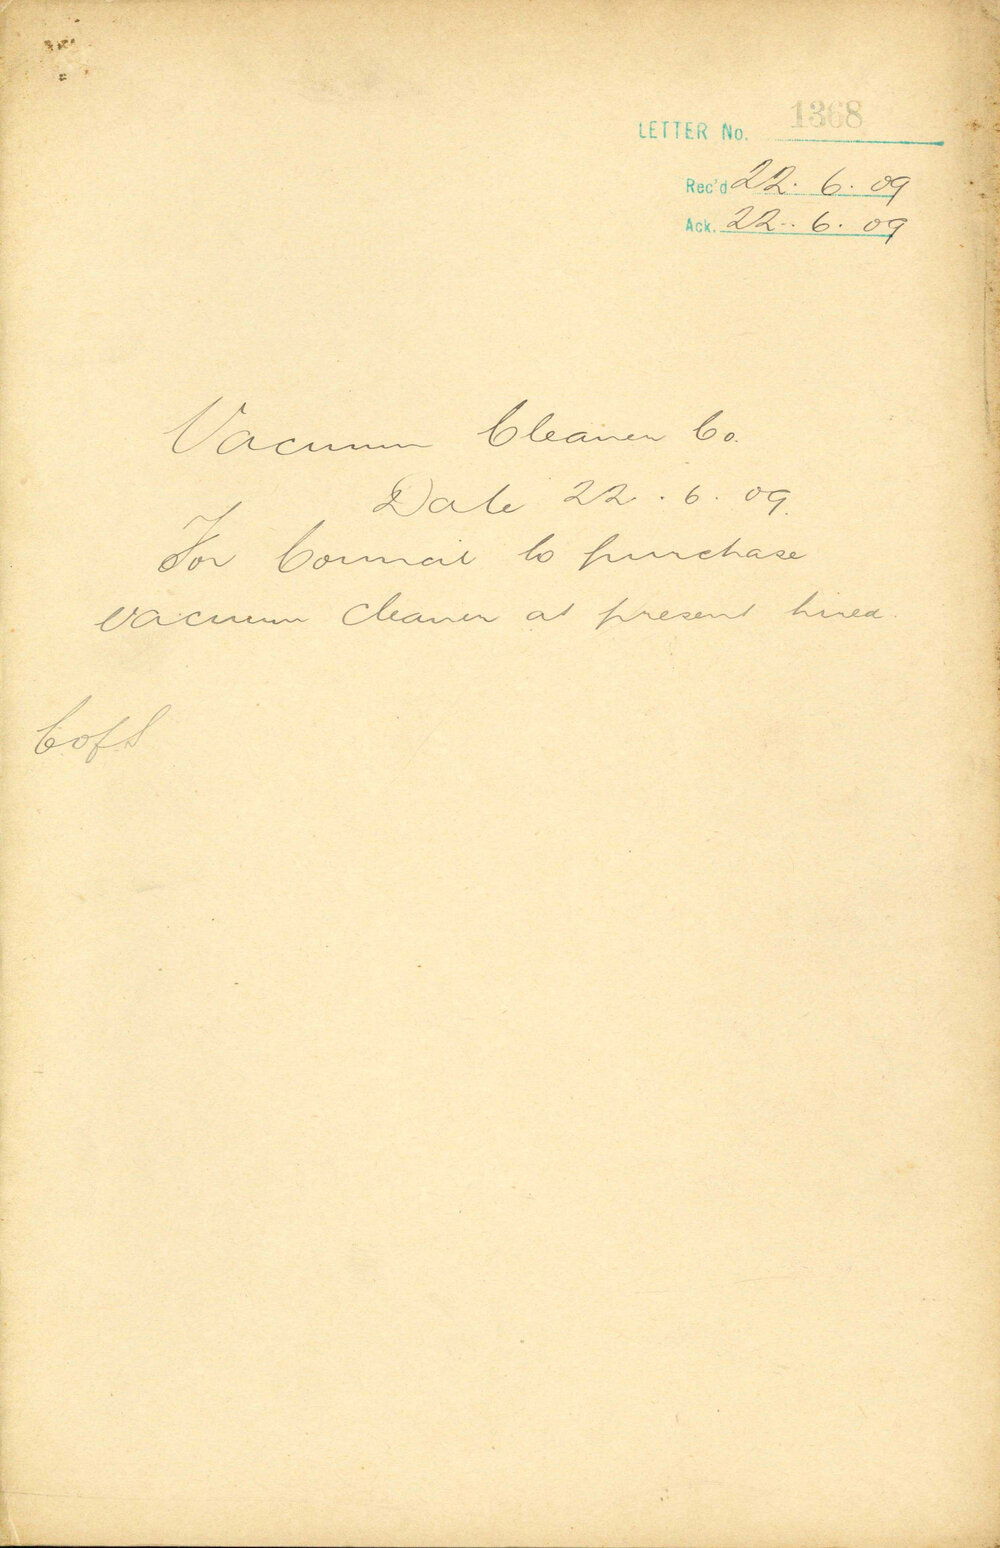 LETTER No. 1368
Rec'd 22. 6. 09
Ack. 22. 6. 09
Vacuum Cleaner Co.
Date 22. 6. 09.
For Council to purchase
vacuum cleaner at present hired.
C of S